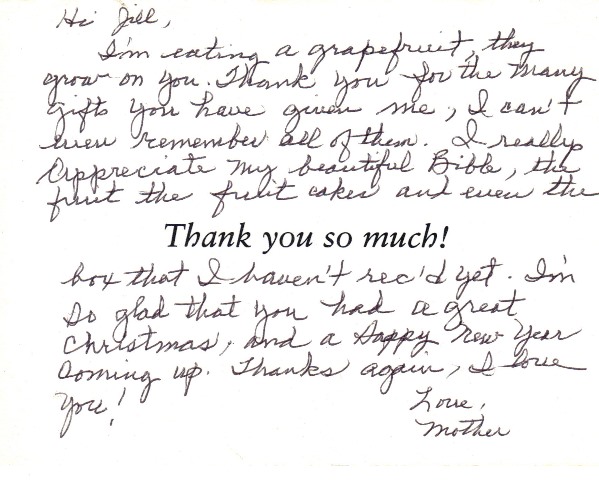 Hi Jill,
I'm eating a grapefruit, they
grow on you. Thank you for the many
gifts you have given me, I can't
even remember all of them. I really
Appreciate my beautiful Bible, the
fruit the fruit cakes and even the
Thank you so much!
box that I haven't rec'd yet. I'm
So glad that you had a great
Christmas, and a Happy New Year
Coming up. Thanks again, I love
you!
Love,
Mother